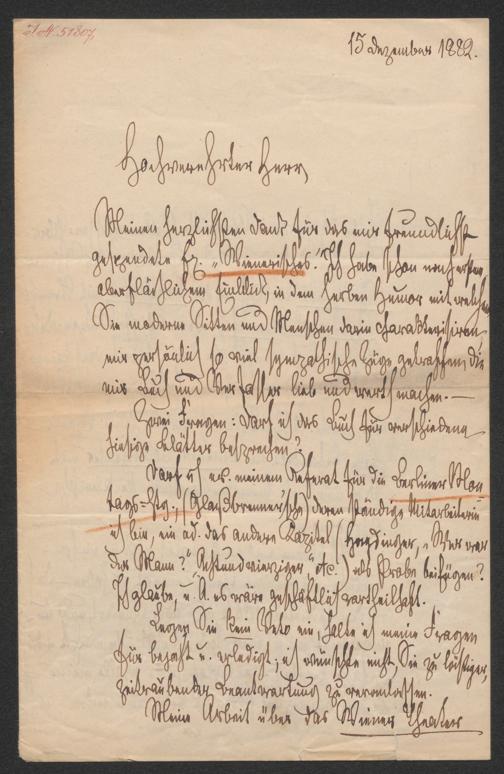 I. N. 51807
15 Dezember 1882.
Hochverehrter Herr,
Meinen herzlichsten Dank für das mir freundlichst
gespendete Ex. „Wienerisches". Ich habe schon nach erstem,
oberflächlichem Einblick, in dem herben Humor mit welchem
Sie moderne Sitten und Menschen darin charakterisiren
mir persönlich so viel sympathische Züge getroffen, die
mir Buch und Verfasser lieb und werth machen. —
Zwei Fragen: Darf ich das Buch für verschiedene
hiesige Blätter besprechen?
Darf ich es. meinem Referat für die Berliner Mon
tags-Ztg., (Glaßbrenner'sche) deren ständige Mitarbeiterin
ich bin, ein od. das andere Kapitel („Wer war
der Mann?" „Achtundvierziger" etc.) als Probe beifügen?
Ich glaube, u. A. es wäre geschäftlich vortheilhaft.
Legen Sie kein Veto ein, halte ich meine Fragen
für bejaht u. erledigt; ich wünschte nicht, Sie zu lästiger,
zeitraubender Beantwortung zu veranlassen.
Meine Arbeit über das Wiener Theater